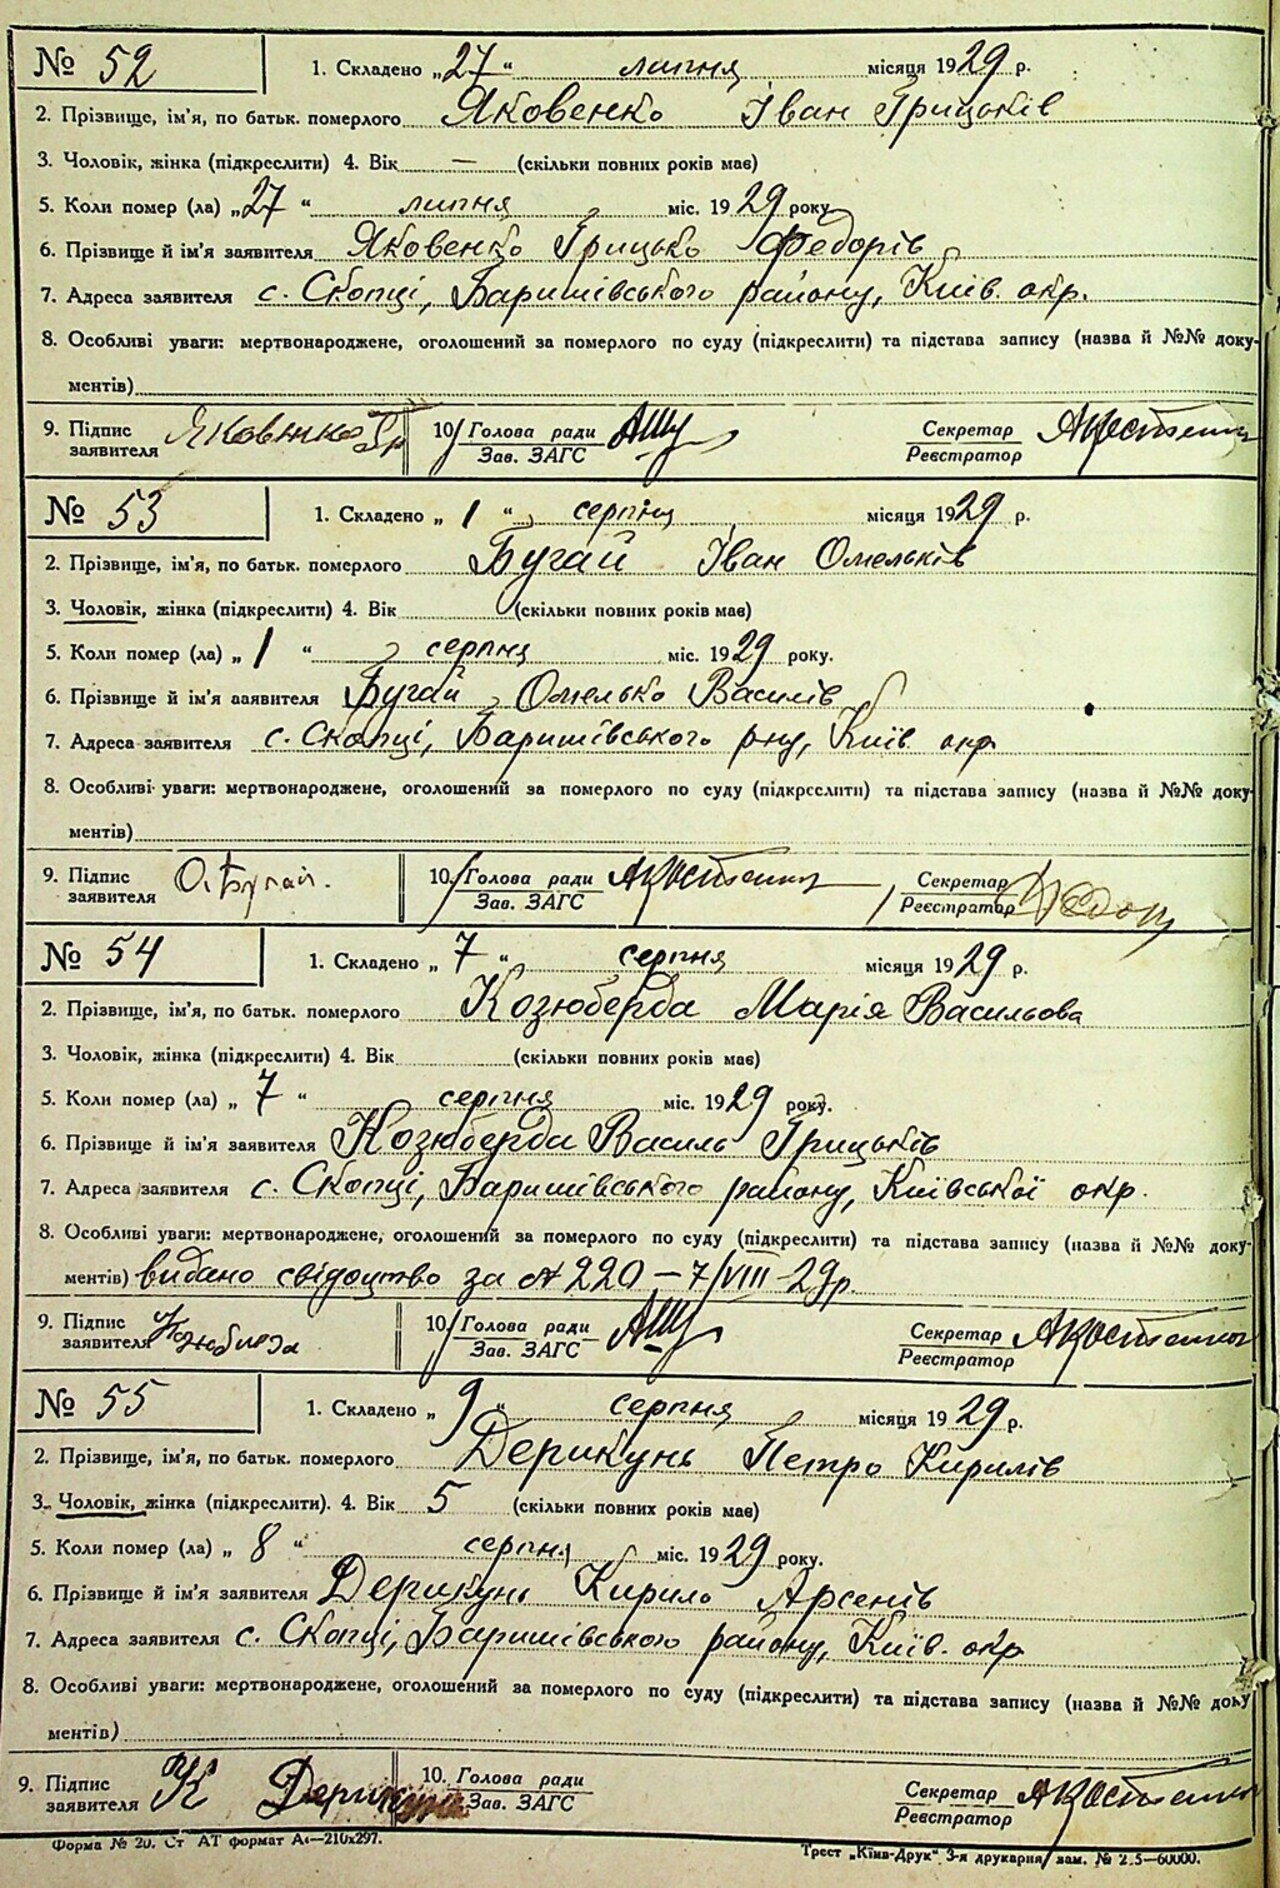 № 52 1. Складено „27“ липня місяця 1929 р.
2. Прізвище, ім'я, по батьк. померлого Яковенко Іван Грицьків
3. Чоловік, жінка (підкреслити) 4. Вік — (скільки повних років має)
5. Коли помер (ла) „27“ липня міс. 1929 року
6. Прізвище й ім'я заявителя Яковенко Грицько Федорів
7. Адреса заявителя с. Скопці, Баришівського району, Київ. окр.
8. Особливі уваги: мертвонароджене, оголошений за померлого по суду (підкреслити) та підстава запису (назва й №№ доку-
ментів)
9. Підпис заявителя Яковенко Гр 10. Голова ради Секретар
Зав. ЗАГС Реєстратор
№ 53 1. Складено „1“ серпня місяця 1929 р.
2. Прізвище, ім'я, по батьк. померлого Бугай Іван Омельків
3. Чоловік, жінка (підкреслити) 4. Вік (скільки повних років має)
5. Коли помер (ла) „1“ серпня міс. 1929 року.
6. Прізвище й ім'я заявителя Бугай Омелько Василів
7. Адреса заявителя с. Скопці, Баришівського рну, Київ. окр
8. Особливі уваги: мертвонароджене, оголошений за померлого по суду (підкреслити) та підстава запису (назва й №№ доку-
ментів)
9. Підпис заявителя О. Бугай. 10. Голова ради Секретар
Зав. ЗАГС Реєстратор
№ 54 1. Складено „7“ серпня місяця 1929 р.
2. Прізвище, ім'я, по батьк. померлого Козюберда Марія Васильова
3. Чоловік, жінка (підкреслити) 4. Вік (скільки повних років має)
5. Коли помер (ла) „7“ серпня міс. 1929 року.
6. Прізвище й ім'я заявителя Козюберда Василь Грицьків
7. Адреса заявителя с. Скопці, Баришівського району, Київської окр.
8. Особливі уваги: мертвонароджене, оголошений за померлого по суду (підкреслити) та підстава запису (назва й №№ доку-
ментів) видано свідоцтво за № 220 – 7/VIII–29р.
9. Підпис заявителя 10. Голова ради Секретар
Зав. ЗАГС Реєстратор
№ 55 1. Складено „9“ серпня місяця 1929 р.
2. Прізвище, ім'я, по батьк. померлого Дерикунь Петро Кирилів
3. Чоловік, жінка (підкреслити). 4. Вік 5 (скільки повних років має)
5. Коли помер (ла) „8“ серпня міс. 1929 року.
6. Прізвище й ім'я заявителя Дерикунь Кирило Арсенів
7. Адреса заявителя с. Скопці, Баришівського району, Київ. окр
8. Особливі уваги: мертвонароджене, оголошений за померлого по суду (підкреслити) та підстава запису (назва й №№ доку
ментів)
9. Підпис заявителя К Дерикунь 10. Голова ради Секретар
Зав. ЗАГС Реєстратор
Форма № 20. Ст АТ формат А4—210х297. Трест „Київ-Друк“ 3-я друкарня, зам. № 2 5—60000.